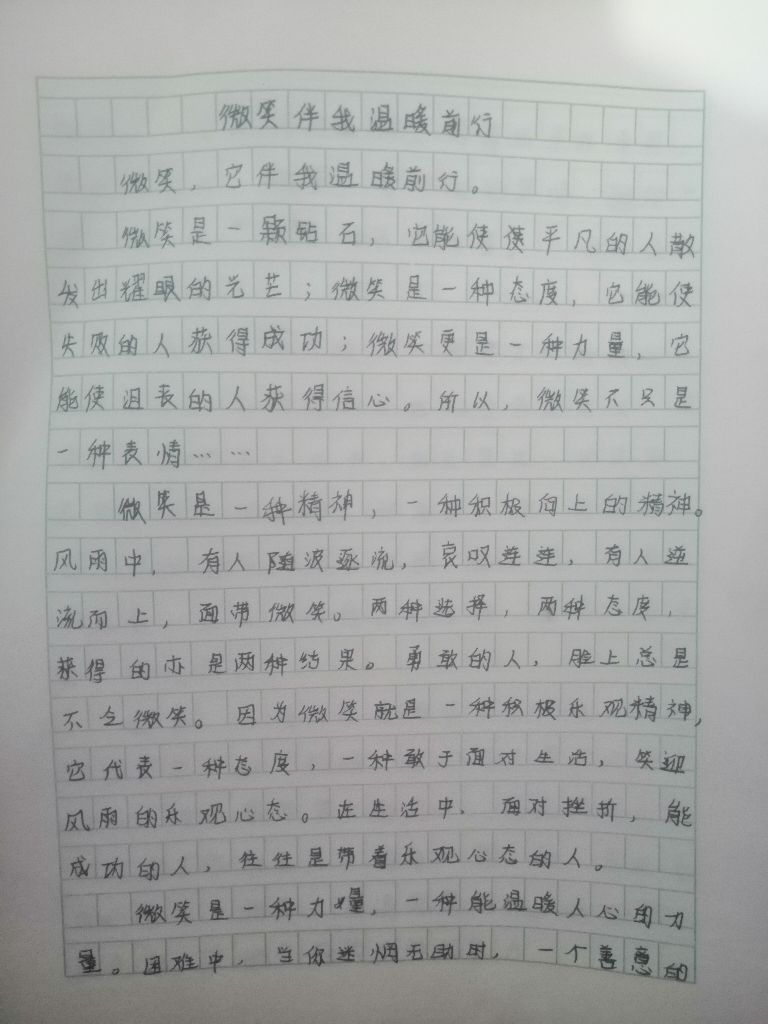 微笑伴我温暖前行
微笑，它伴我温暖前行。
微笑是一颗钻石，它能使平凡的人散
发出耀眼的光芒；微笑是一种态度，它能使
失败的人获得成功；微笑更是一种力量，它
能使沮丧的人获得信心。所以，微笑不只是
一种表情……
微笑是一种精神，一种积极向上的精神。
风雨中，有人随波逐流，哀叹连连，有人逆
流而上，面带微笑。两种选择，两种态度，
获得的亦是两种结果。勇敢的人，脸上总是
不乏微笑。因为微笑就是一种积极乐观精神，
它代表一种态度，一种敢于面对生活，笑迎
风雨的乐观心态。在生活中，面对挫折，能
成功的人，往往是带着乐观心态的人。
微笑是一种力量，一种能温暖人心的力
量。困难中，当你迷惘无助时，一个善意的